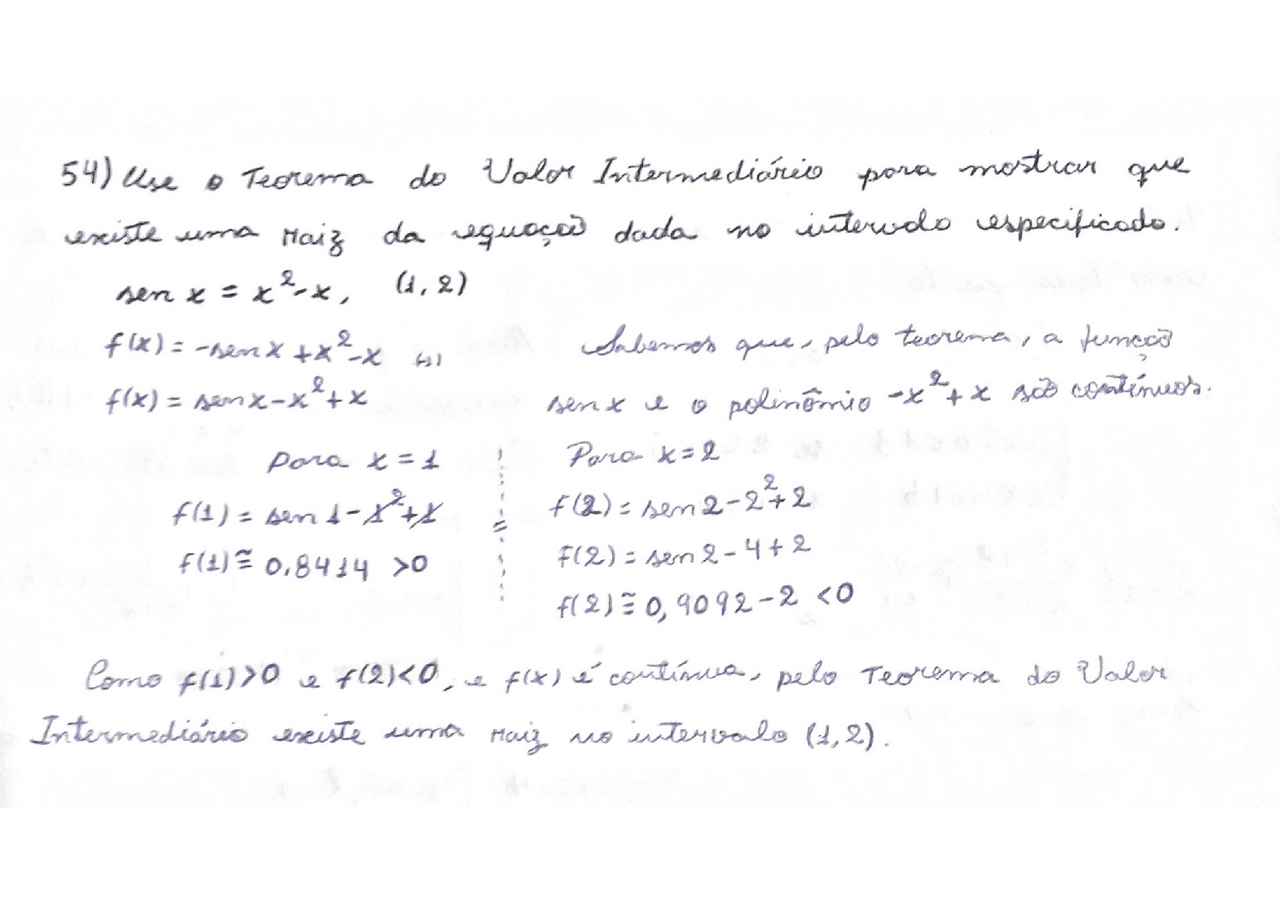 54) Use o Teorema do Valor Intermediário para mostrar que
existe uma raiz da equação dada no intervalo especificado.
sen x = x² - x, (1, 2)
f(x) = -sen x + x² - x
f(x) = sen x - x² + x
Sabemos que, pelo teorema, a função
sen x e o polinômio -x² + x são contínuos.
para x = 1
f(1) = sen 1 - 1² + 1
f(1) ≅ 0,8414 > 0
Para x = 2
f(2) = sen 2 - 2² + 2
f(2) = sen 2 - 4 + 2
f(2) ≅ 0,9092 - 2 < 0
Como f(1) > 0 e f(2) < 0, e f(x) é contínua, pelo Teorema do Valor
Intermediário existe uma raiz no intervalo (1, 2).